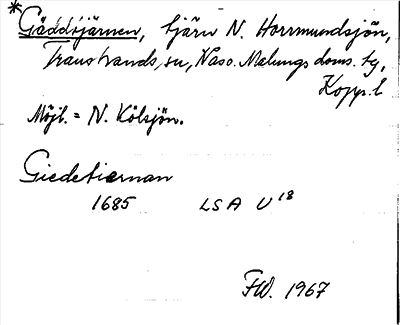 *Gäddtjärnen, tjärn N. Horrmundsjön,
Transtrands sn, Nås o. Malungs doms. tg,
Kopps. l
Möjl. = N. Kölsjön.
Giedetiernan
1685 LSA U 18
FW. 1967